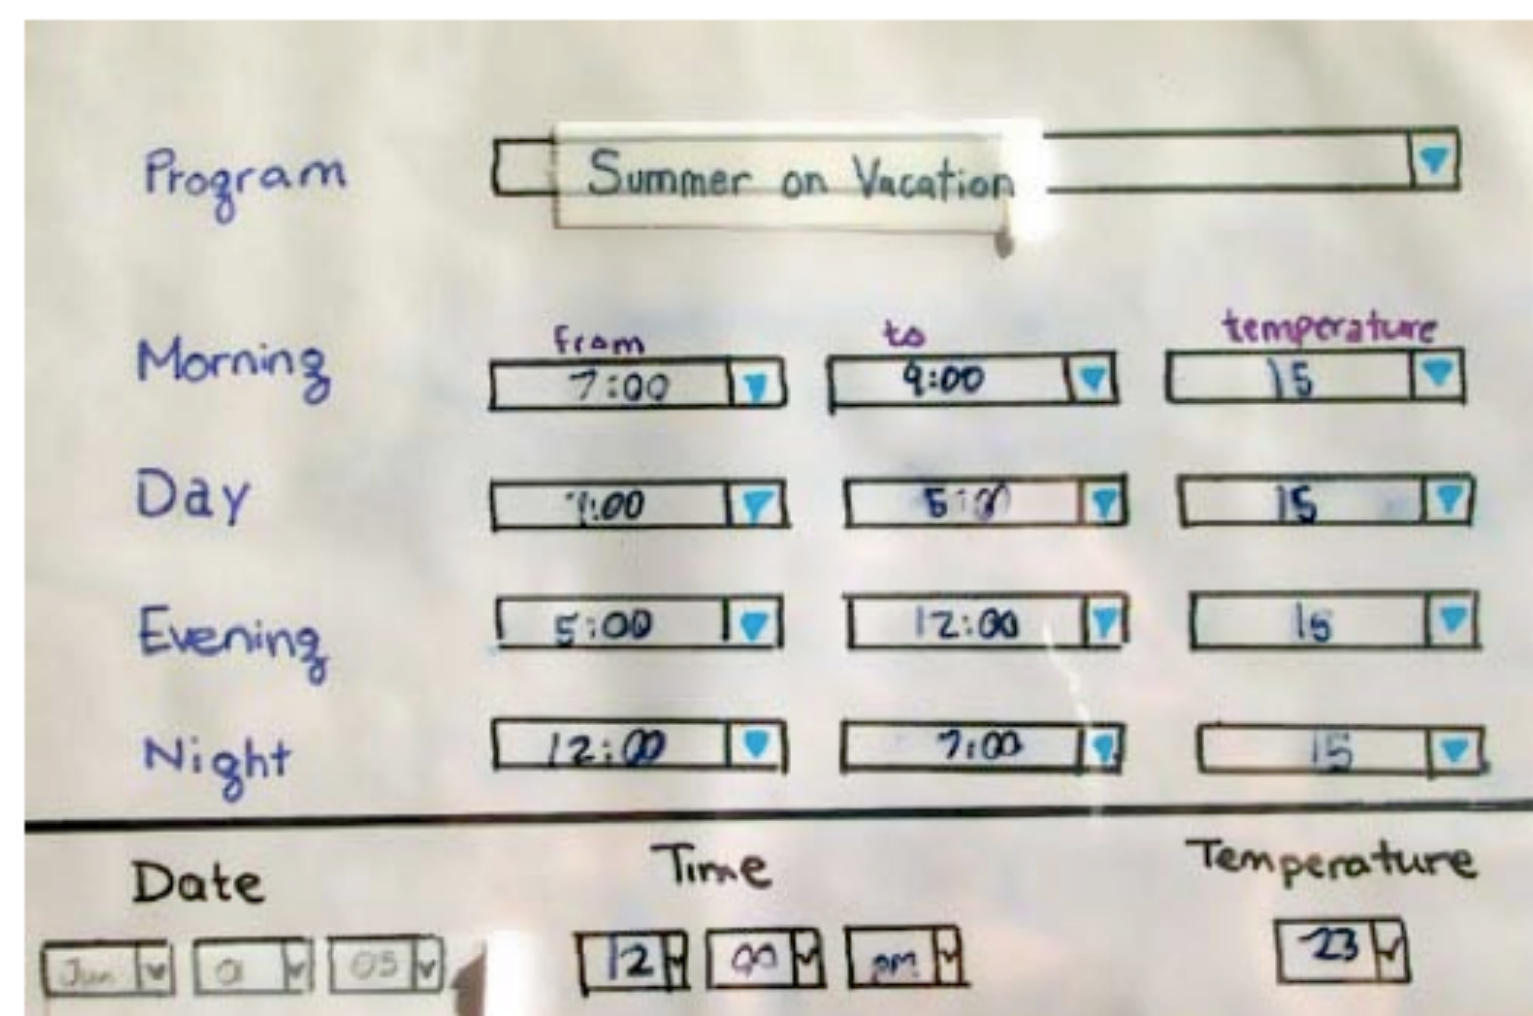 Program Summer on Vacation
from to temperature
Morning 7:00 9:00 15
Day 5:00 15
Evening 5:00 12:00 15
Night 12:00 7:00 15
Date Time Temperature
Jun 01 05 12 00 pm 23